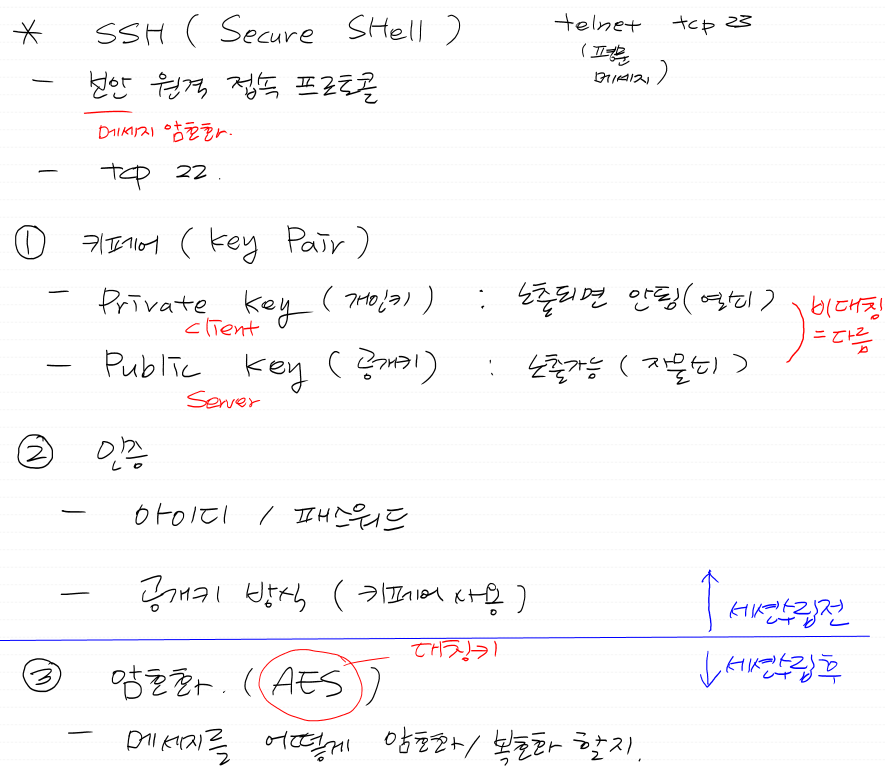 * SSH ( Secure SHell )
telnet tcp 23
(평문
메세지)
- 보안 원격 접속 프로토콜
메세지 암호화.
- tcp 22.
① 키페어 ( key Pair )
- Private key ( 개인키 ) : 노출되면 안됨 ( 열쇠 )
client
비대칭
= 다름
- Public key ( 공개키 ) : 노출가능 ( 자물쇠 )
Server
② 인증
- 아이디 / 패스워드
- 공개키 방식 ( 키페어 사용 )
↑ 세션수립전
대칭키
③ 암호화. ( AES )
↓ 세션수립후
- 메세지를 어떻게 암호화/복호화 할지.